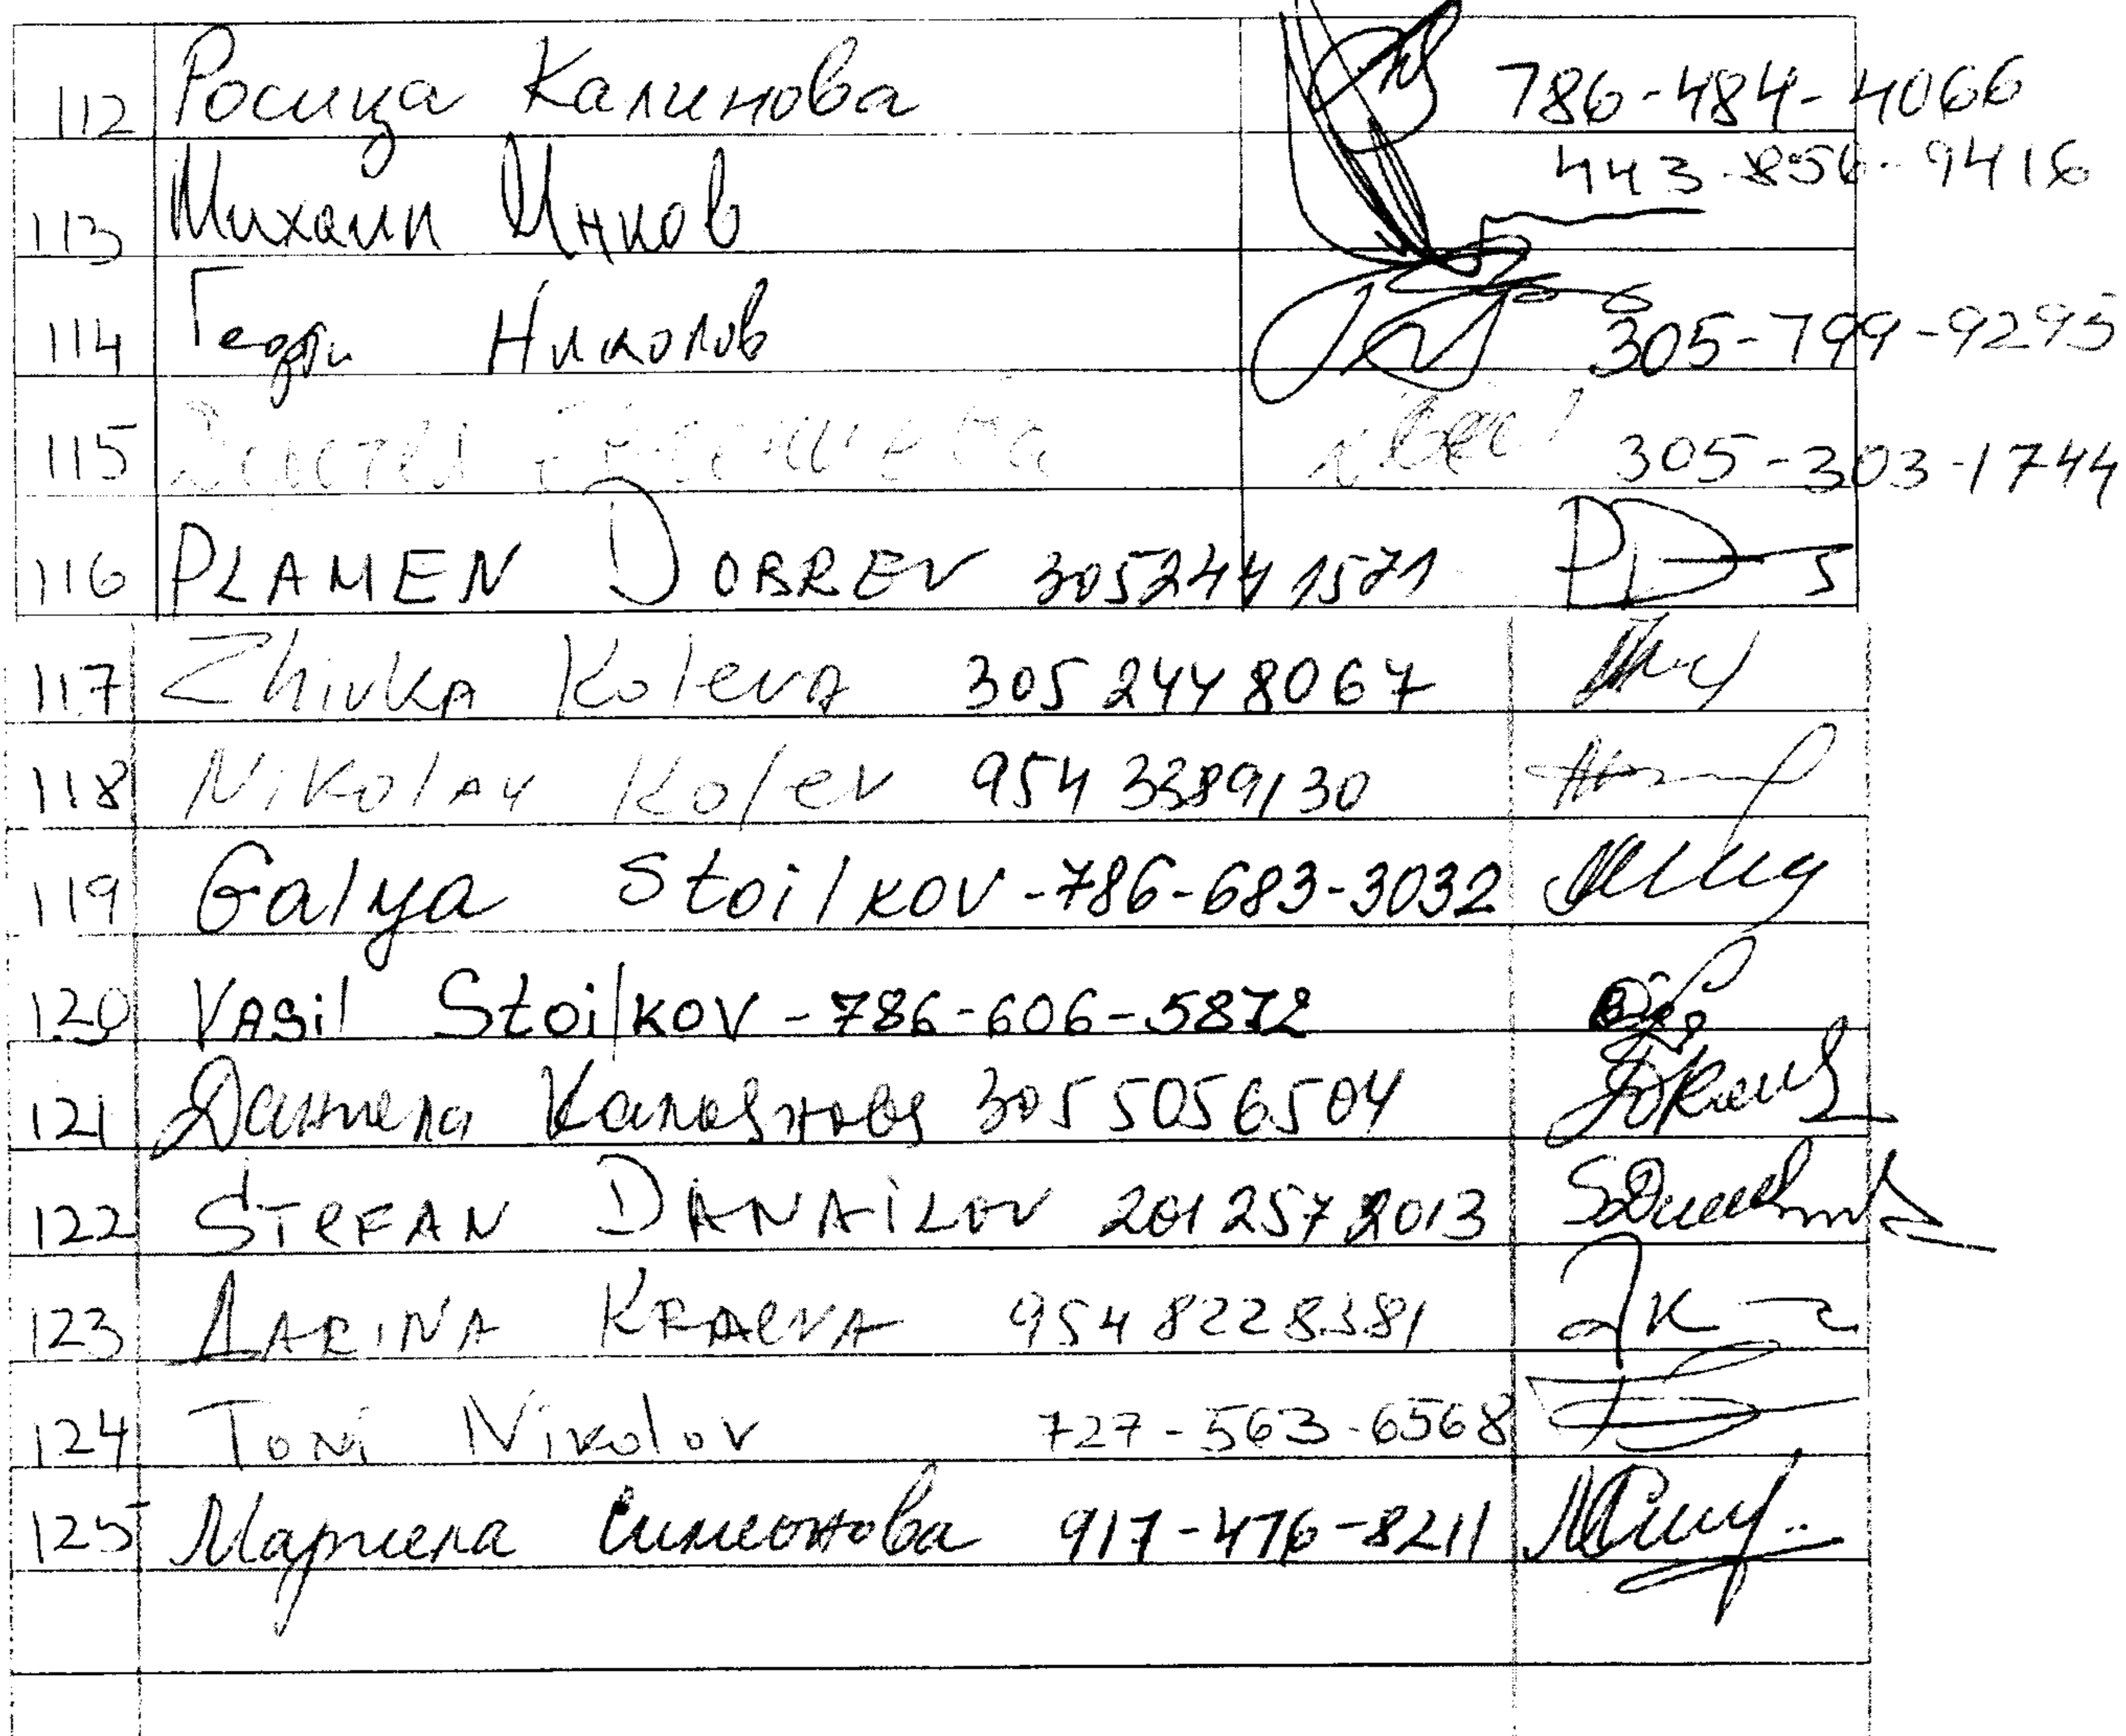 112 Росица Калинова 786-484-4066
113 Михаил Инков 443-856-9416
114 Георги Николов 305-799-9295
115 305-303-1744
116 PLAMEN DOBREV 3052441571 PD
117 Zhivka Koleva 305 244 8067
118 Nikolay Kolev 954 3389130
119 Galya Stoilkov - 786-683-3032
120 Vasil Stoilkov - 786-606-5872
121 Даниела Калоянова 305 5056504
122 STEFAN DANAiLOV 201 257 2013
123 LARINA KRAEVA 954 8228381
124 Toni Nikolov 727-563-6568
125 Мариела Симеонова 917-476-8211